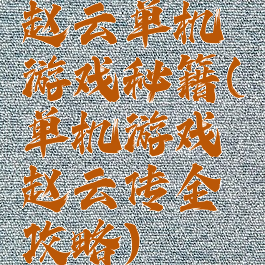 赵云单机
游戏秘籍(
单机游戏
赵云传全
攻略)